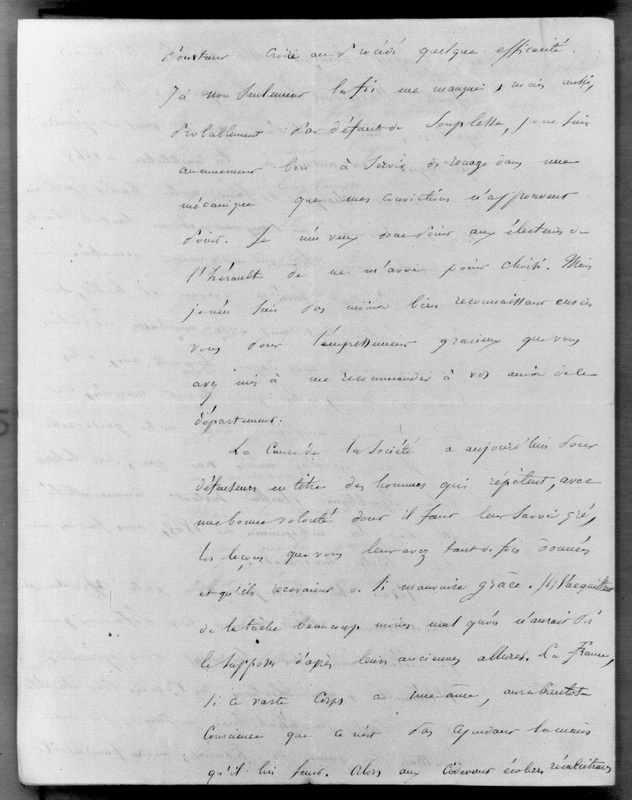 pourtant croire au procédé quelque efficacité.
Ici non seulement la foi me manque, mais aussi,
probablement par défaut de souplesse, je ne suis
aucunement bon à servir de rouage dans une
mécanique que mes convictions n'approuvent
point. Je n'en veux donc point aux électeurs de
l'hérault de ne m'avoir point choisi. Mais
je n'en suis pas moins bien reconnaissant envers
vous pour l'empressement gracieux que vous
avez mis à me recommander à vos amis de le
département.
La Cause de la Société a aujourd'hui pour
défenseurs en titre des hommes qui répètent, avec
une bonne volonté dont il faut leur savoir gré,
les leçons que vous leur avez tant de fois données
et qu'ils recevaient de si mauvaise grâce. Ils s'acquittent
de la tâche beaucoup moins mal qu'on n'aurait dû
le supposer d'après leurs anciennes allures. La France,
si ce vaste corps a une âme, aura bientôt
conscience que ce n'est pas cependant la main
qu'il lui faut. Alors aux ci-devant écoliers récalcitrans